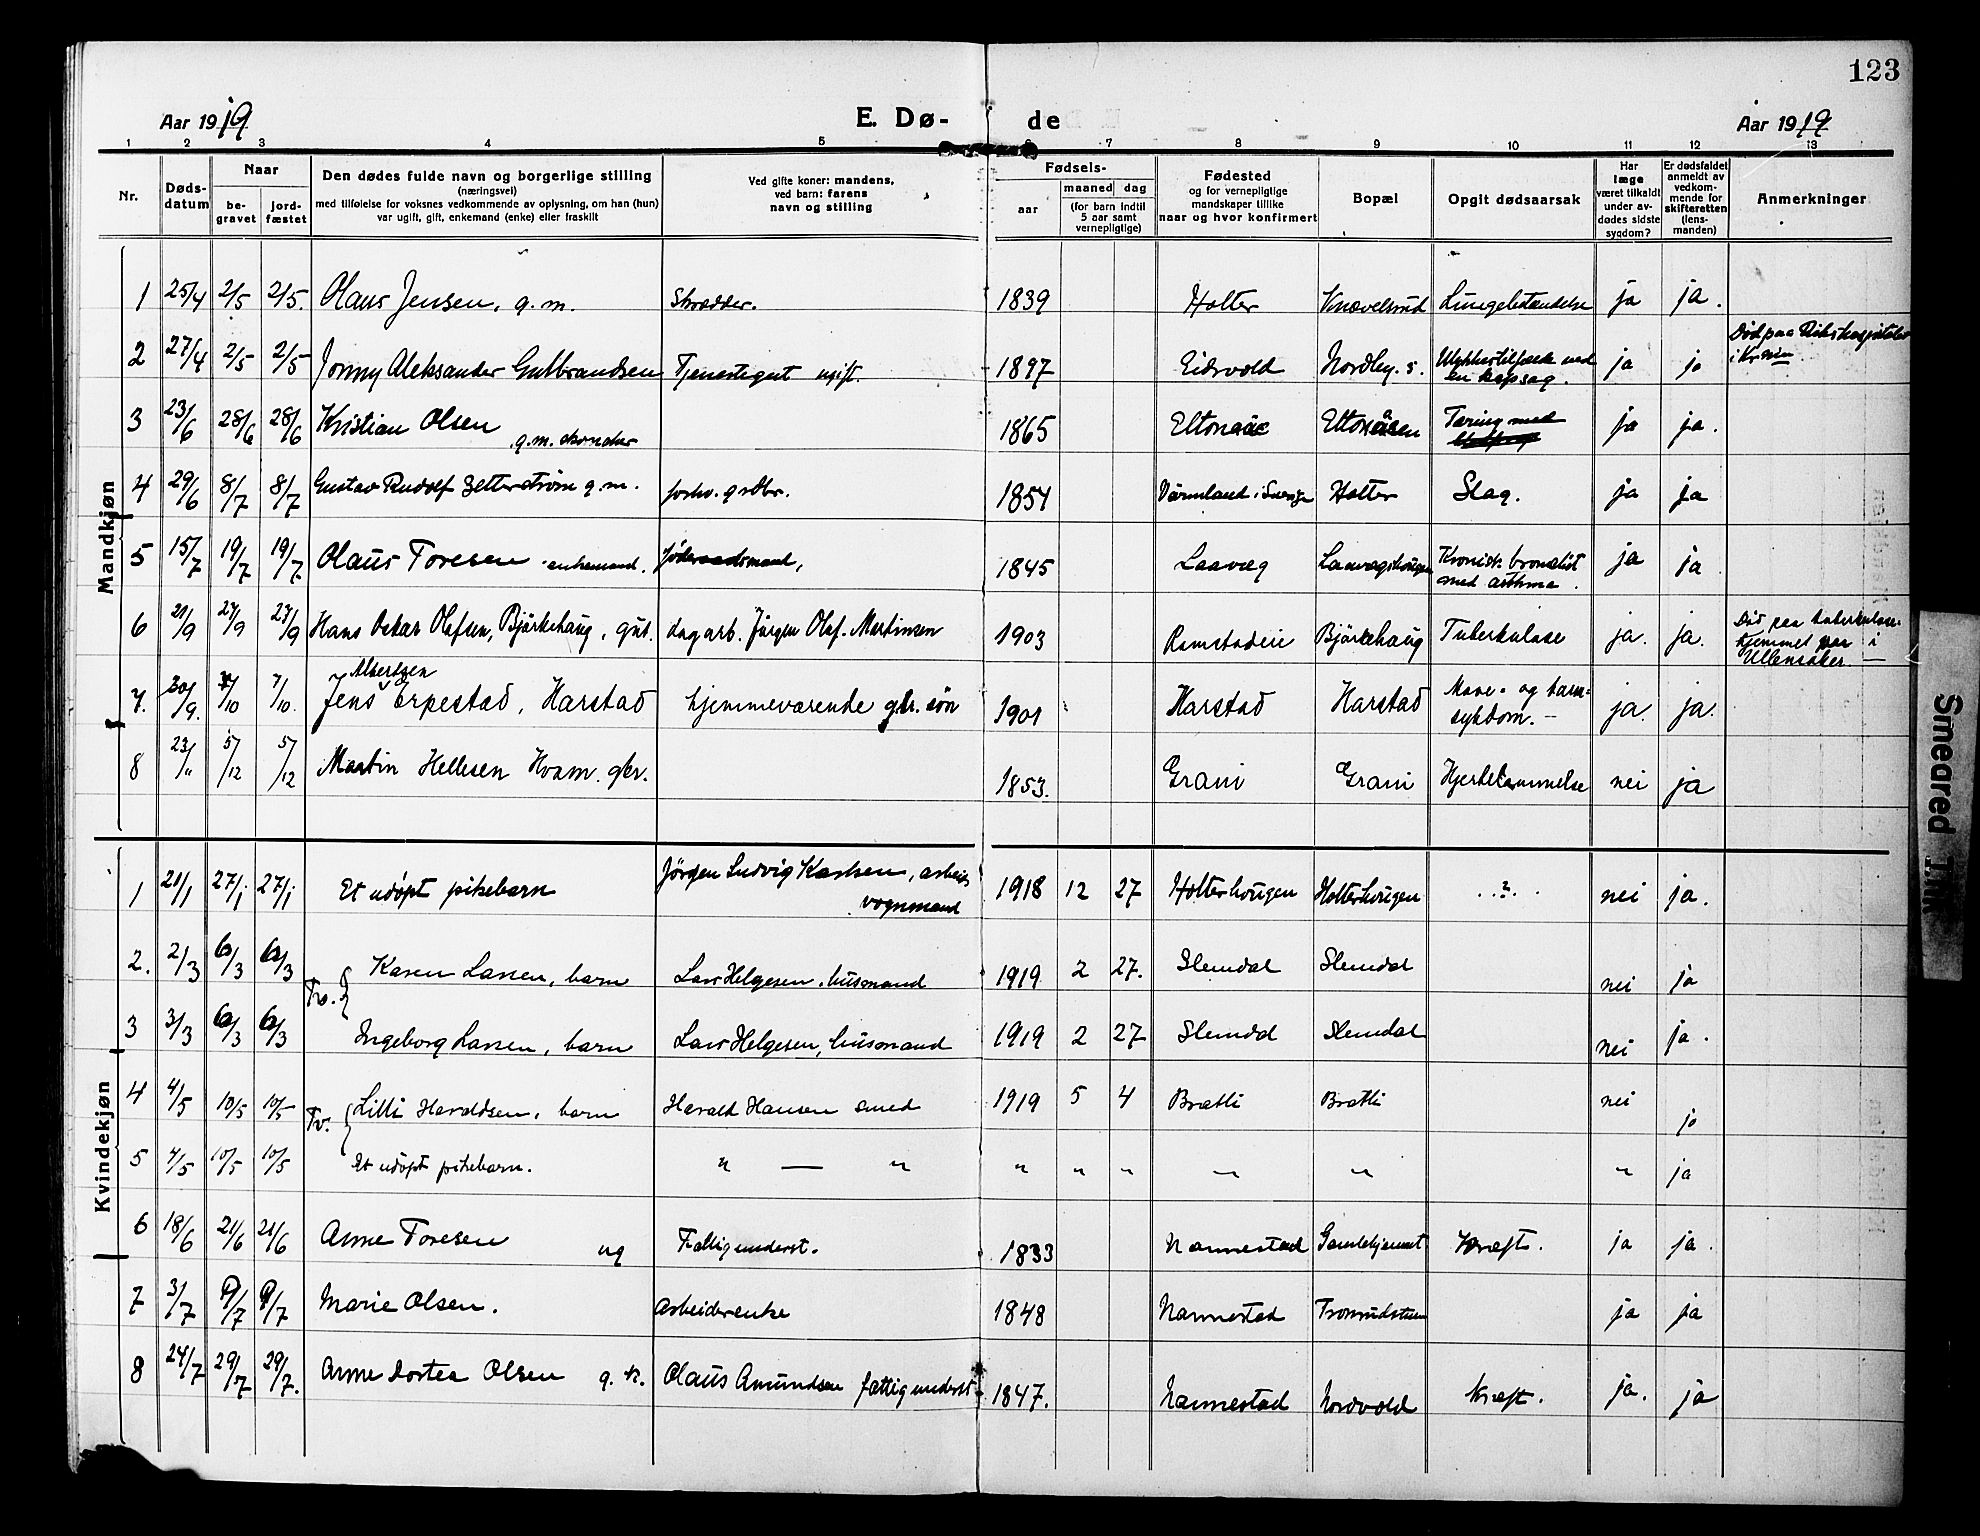 123
Aar 1919 E. Dø- de Aar 1919
1 2 3 4 5 6 7 8 9 10 11 12 13
Nr.
Døds-
datum
Naar
be-
gravet
jord-
fæstet
Den dødes fulde navn og borgerlige stilling
(næringsvei)
med tilføielse for voksnes vedkommende av oplysning, om han (hun)
var ugift, gift, enkemand (enke) eller fraskilt
Ved gifte koner: mandens,
ved barn: farens
navn og stilling
Fødsels-
aar
maaned dag
(for barn indtil
5 aar samt
vernepligtige)
Fødested
og for vernepligtige
mandskaper tillike
naar og hvor konfirmert
Bopæl
Opgit dødsaarsak
Har
læge
været tilkaldt
under av-
dødes sidste
sygdom?
Er dødsfaldet
anmeldt av
vedkom-
mende for
skifteretten
(lens-
manden)
Anmerkninger
Mandkjøn
1 25/4 2/5 2/5. Olaus Jensen, g.m. Skrædder. 1839 Holter Knævelsrud Lungebetændelse ja ja.
2 27/4 2/5 2/5 Jonny Aleksander Gulbrandsen Tjenestegut ugift. 1897 Eidsvold Nordby. s. Ulykkestilfælde ved
en kapsag. ja ja Død paa Rikshospitalet
i Kr.nia
3 23/6 28/6 28/6 Kristian Olsen g.m. 1865 Eltonaas Eltonåsen Tæring med ja ja.
4 29/6 8/7 8/7 Gustav Rudolf Zetterstrøm g.m. forhv. grdbr. 1854 Värmland i Sverige Holter Slag. ja ja
5 15/7 19/7 19/7. Olaus Toresen enkemand. 1845 Laavæg Laavægshougen Kronisk bronchit
med asthma. ja ja
6 21/9 27/9 27/9 Hans Oskar Olafsen, Bjørkehaug, gut. dagarb. Jørgen Olaf Martinsen 1903 Ramstadeie Bjørkehaug Tuberkulose ja. ja. Død paa tuberkulose-
hjemmet paa i
Ullensaker. —
7. 30/9. 7/10 7/10. Albertsen
Jens Erpestad, Harstad hjemmeværende gbr. søn 1901 Harstad Harstad Mave- og tarm-
sykdom. — ja. ja.
8 23/11 5/12 5/12 Martin Hellesen Hvam. gbr. 1853. Grani Grani Hjertelammelse nei ja
Kvindekjøn
1 21/1 27/1 27/1 Et udøpt pikebarn Jörgen Ludvig Karlsen, arbeids
vognmand 1918 12 27 Holterhougen Holterhougen ..?.. nei ja.
2. 2/3 6/3 6/3 Tv. { Karen Larsen, barn Lars Helgesen, husmand 1919 2 27. Slemdal Slemdal nei ja
3 3/3 6/3 6/3 Ingeborg Larsen, barn Lars Helgesen, husmand 1919 2 27 Slemdal Slemdal nei ja.
4 4/5 10/5 10/5 Tv. { Lilli Haraldsen, barn Harald Hansen smed 1919 5 4 Brætli Brætli nei ja
5 4/5 10/5 10/5 Et udøpt pikebarn. " — " " " " " " " ja
6 18/6 21/6 21/6 Anne Toresen ug Fattigunderst. 1833 Nannestad Gamlehjemmet Kræft. ja ja.
7 3/7 9/7 9/7 Marie Olsen. Arbeiderenke 1848 Nannestad Tronrudstuen ja ja
8 24/7 29/7 29/7. Anne Dortea Olsen g. k. Olaus Amundsen fattigunderst. 1847. Nannestad Nordvold Kræft. ja. ja
Smeared Ink